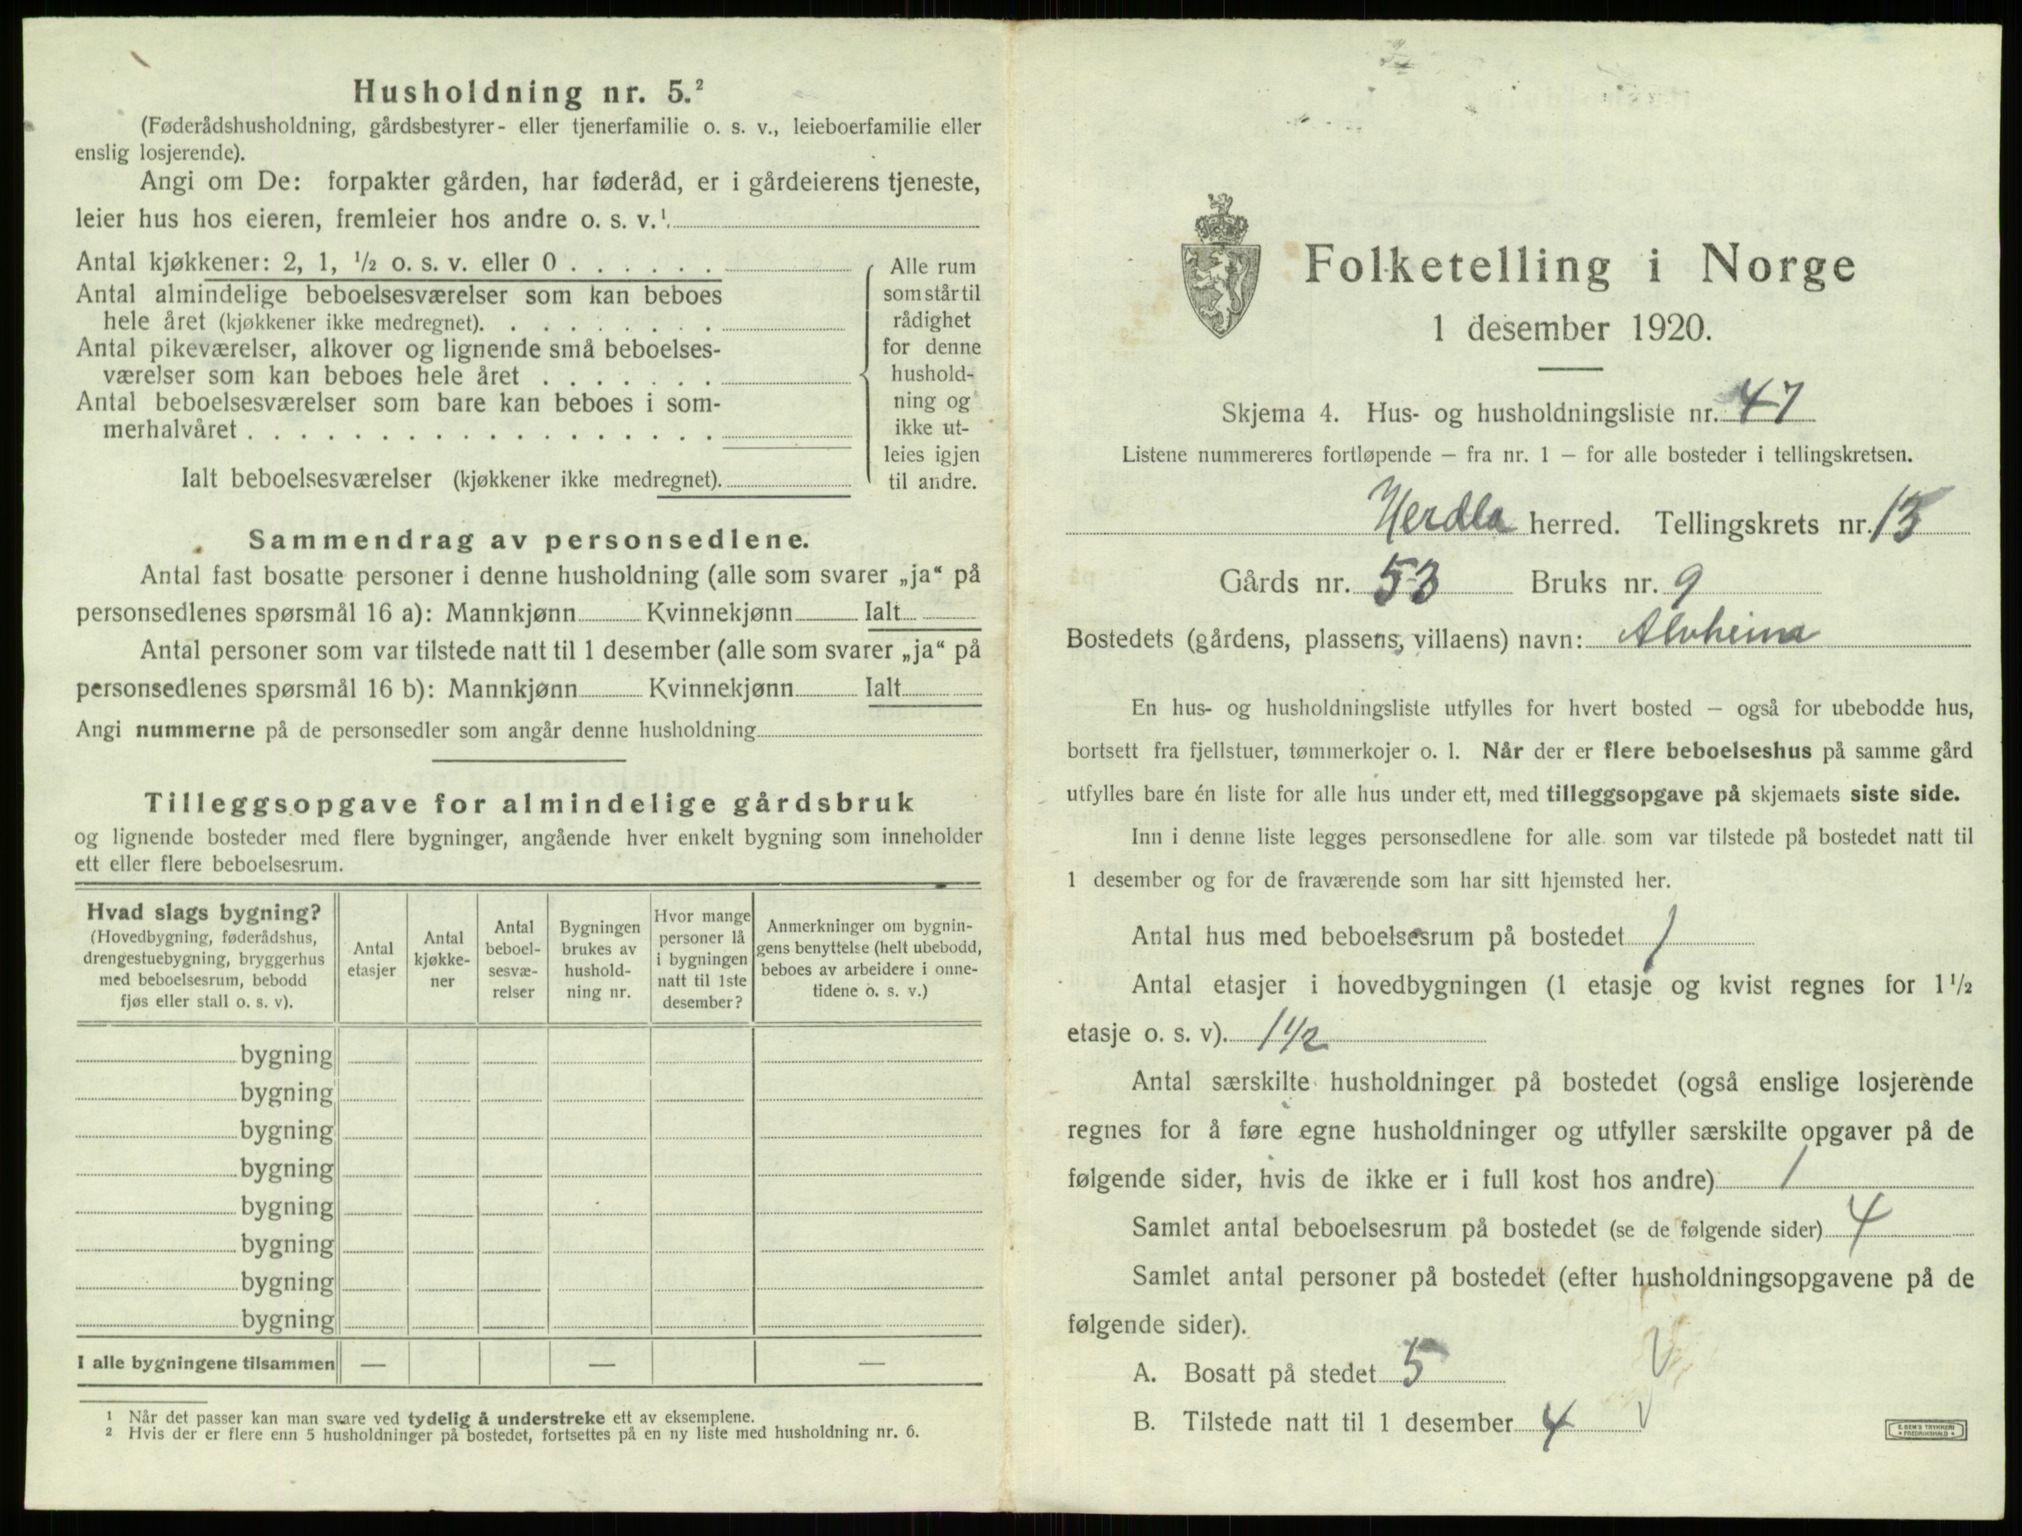 Husholdning nr. 5.²
(Føderådshusholdning, gårdsbestyrer- eller tjenerfamilie o. s. v., leieboerfamilie eller
enslig losjerende).
Angi om De: forpakter gården, har føderåd, er i gårdeierens tjeneste,
leier hus hos eieren, fremleier hos andre o. s. v.¹
Antal kjøkkener: 2, 1, ½ o. s. v. eller 0 . . . . . .
Antal almindelige beboelsesværelser som kan beboes
hele året (kjøkkener ikke medregnet). . . . . . . . .
Antal pikeværelser, alkover og lignende små beboelses-
værelser som kan beboes hele året . . . . . . .
Antal beboelsesværelser som bare kan beboes i som-
merhalvåret . . . . . . . . . . . . . . . . . .
Ialt beboelsesværelser (kjøkkener ikke medregnet).
Alle rum
som står til
rådighet
for denne
hushold-
ning og
ikke ut-
leies igjen
til andre.
Sammendrag av personsedlene.
Antal fast bosatte personer i denne husholdning (alle som svarer „ja“ på
personsedlenes spørsmål 16 a): Mannkjønn Kvinnekjønn Ialt
Antal personer som var tilstede natt til 1 desember (alle som svarer „ja“ på
personsedlenes spørsmål 16 b): Mannkjønn Kvinnekjønn Ialt
Angi nummerne på de personsedler som angår denne husholdning
Tilleggsopgave for almindelige gårdsbruk
og lignende bosteder med flere bygninger, angående hver enkelt bygning som inneholder
ett eller flere beboelsesrum.
Hvad slags bygning?
(Hovedbygning, føderådshus,
drengestuebygning, bryggerhus
med beboelsesrum, bebodd
fjøs eller stall o. s. v).
Antal
etasjer
Antal
kjøkke-
ner
Antal
beboel-
sesvæ-
relser
Bygningen
brukes av
hushold-
ning nr.
Hvor mange
personer lå
i bygningen
natt til 1ste
desember?
Anmerkninger om bygnin-
gens benyttelse (helt ubebodd,
beboes av arbeidere i onne-
tidene o. s. v.)
bygning
bygning
bygning
bygning
bygning
bygning
bygning
bygning
I alle bygningene tilsammen — — —
¹ Når det passer kan man svare ved tydelig å understreke ett av eksemplene.
² Hvis der er flere enn 5 husholdninger på bostedet, fortsettes på en ny liste med husholdning nr. 6.
Folketelling i Norge
1 desember 1920.
Skjema 4. Hus- og husholdningsliste nr. 47
Listene nummereres fortløpende — fra nr. 1 — for alle bosteder i tellingskretsen.
Herdla herred. Tellingskrets nr. 13
Gårds nr. 53 Bruks nr. 9
Bostedets (gårdens, plassens, villaens) navn: Alvheim
En hus- og husholdningsliste utfylles for hvert bosted — også for ubebodde hus,
bortsett fra fjellstuer, tømmerkojer o. l. Når der er flere beboelseshus på samme gård
utfylles bare én liste for alle hus under ett, med tilleggsopgave på skjemaets siste side.
Inn i denne liste legges personsedlene for alle som var tilstede på bostedet natt til
1 desember og for de fraværende som har sitt hjemsted her.
Antal hus med beboelsesrum på bostedet 1
Antal etasjer i hovedbygningen (1 etasje og kvist regnes for 1½
etasje o. s. v). 1½
Antal særskilte husholdninger på bostedet (også enslige losjerende
regnes for å føre egne husholdninger og utfyller særskilte opgaver på de
følgende sider, hvis de ikke er i full kost hos andre) 1
Samlet antal beboelsesrum på bostedet (se de følgende sider) 4
Samlet antal personer på bostedet (efter husholdningsopgavene på de
følgende sider).
A. Bosatt på stedet 5
B. Tilstede natt til 1 desember 4